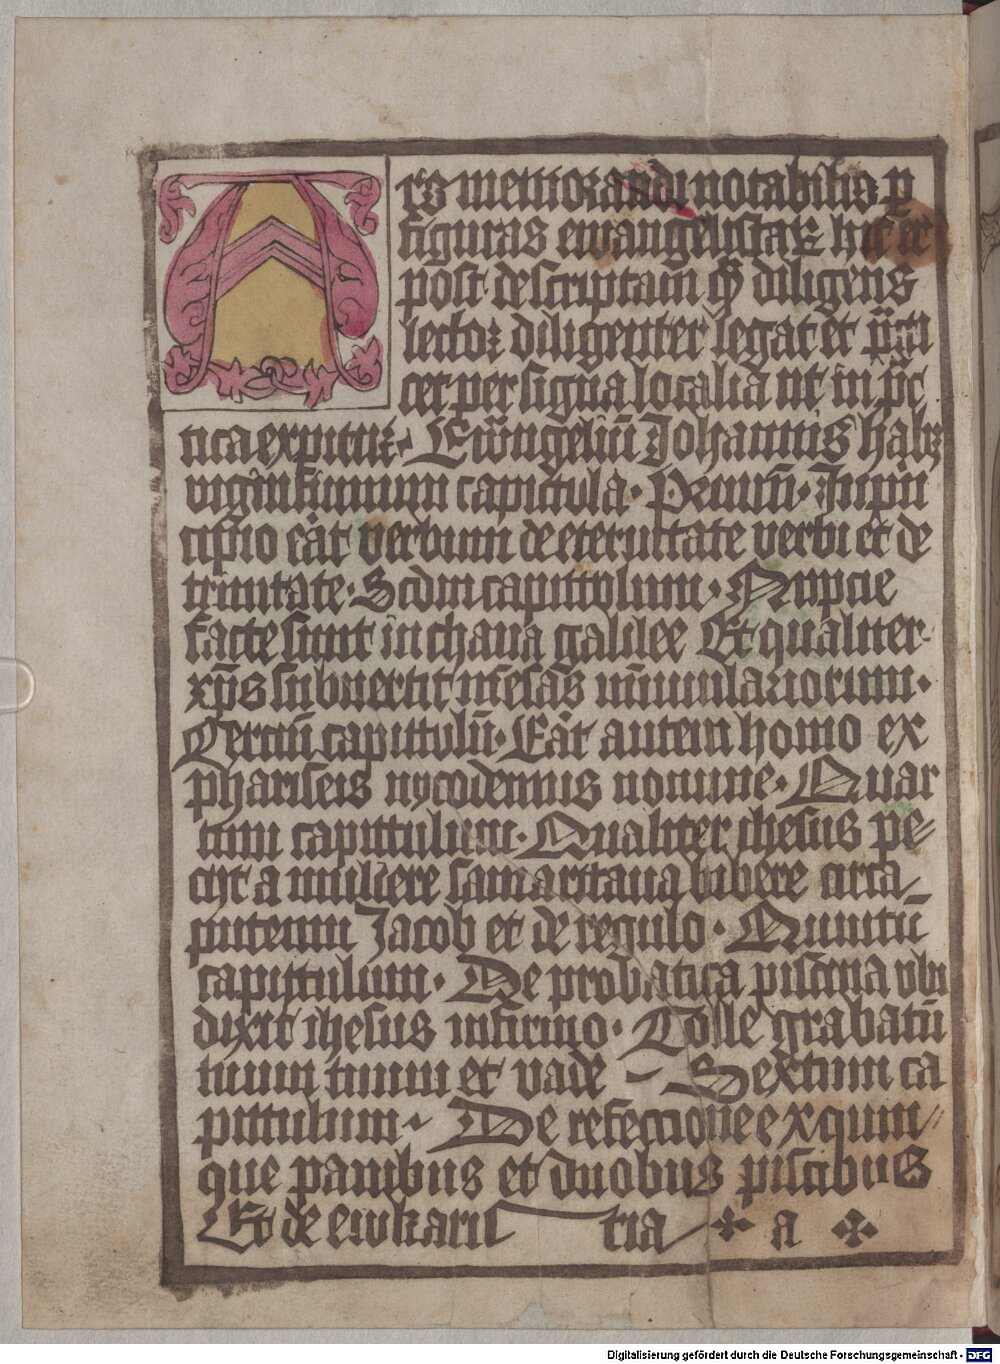 Ars memorandi notabiliū p
figuras ewangelistaꝝ hic et
post descriptam q̄ diligens
lector diligenter legat et p̄cti
cet per signa localia ut in p̄c
tica exp̄ituꝛ· Ewāngeliū Johannis habꝫ
viginti unum capitula· Primū· Inpn̄
cipio erāt verbum de eternitate verbi et de
trinitate· Scdm capittolum· Nupcie
facte sunt in chana galilee Et qualiter
xp̄s subuertit mēsas nūmulariorum·
Terciū capittulū· Erāt autem homo ex
phariseis nycodemus nomine· Quar
tum capittulum· Qualiter ihesus pe⸗
cijt a muliere samaritana bibere circa
puteum Jacob et de regulo· Quintū
capittulum· De probatica piscina vbi
dixit ihesus infirmo· Tolle grabatū
tuum tuum et vade – Sextum ca
pittulum· De refectionee ex quin⸗
que panibus et duobus piscibus
Et de ewkaris tia ✣ a ✣
Digitalisierung gefördert durch die Deutsche Forschungsgemeinschaft - DFG